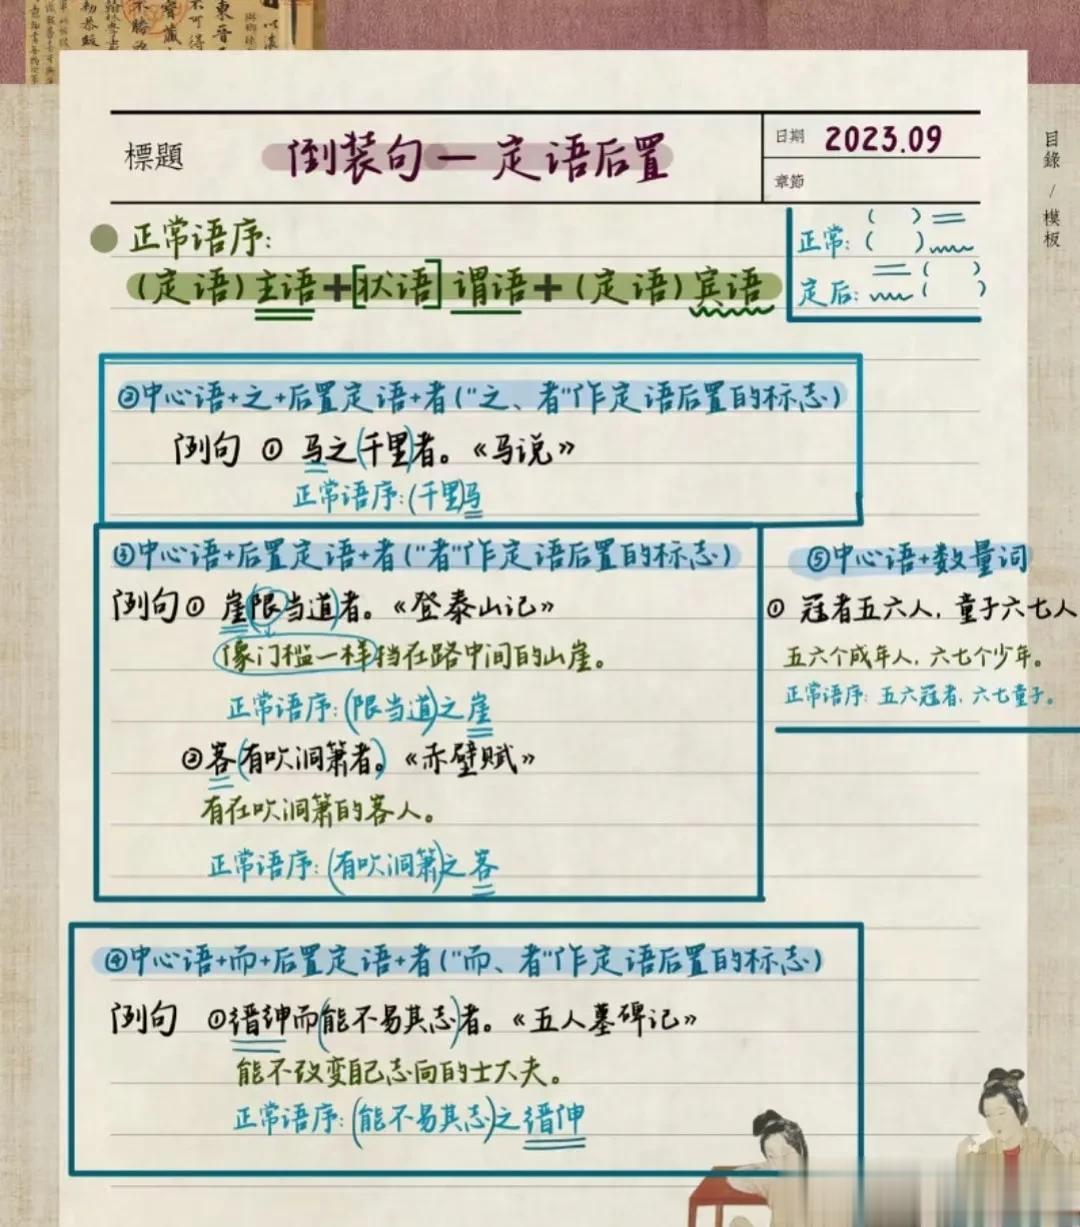 標題
倒装句—定语后置
日期 2023.09
章節
目錄/模板
正常语序:
(定语)主语+[状语]谓语+(定语)宾语
正常: ( )
( )
定后: ( )
( )
②中心语+之+后置定语+者("之、者"作定语后置的标志)
例句 ① 马之(千里)者。《马说》
正常语序:(千里)马
③中心语+后置定语+者("者"作定语后置的标志)
例句① 崖(限当道)者。《登泰山记》
像门槛一样挡在路中间的山崖。
正常语序:(限当道)之崖
②客(有吹洞箫者)。《赤壁赋》
有在吹洞箫的客人。
正常语序:(有吹洞箫)之客
⑤中心语+数量词
① 冠者五六人,童子六七人
五六个成年人,六七个少年。
正常语序: 五六冠者,六七童子。
④中心语+而+后置定语+者("而、者"作定语后置的标志)
例句 ①缙绅而(能不易其志)者。《五人墓碑记》
能不改变自己志向的士大夫。
正常语序:(能不易其志)之缙伸